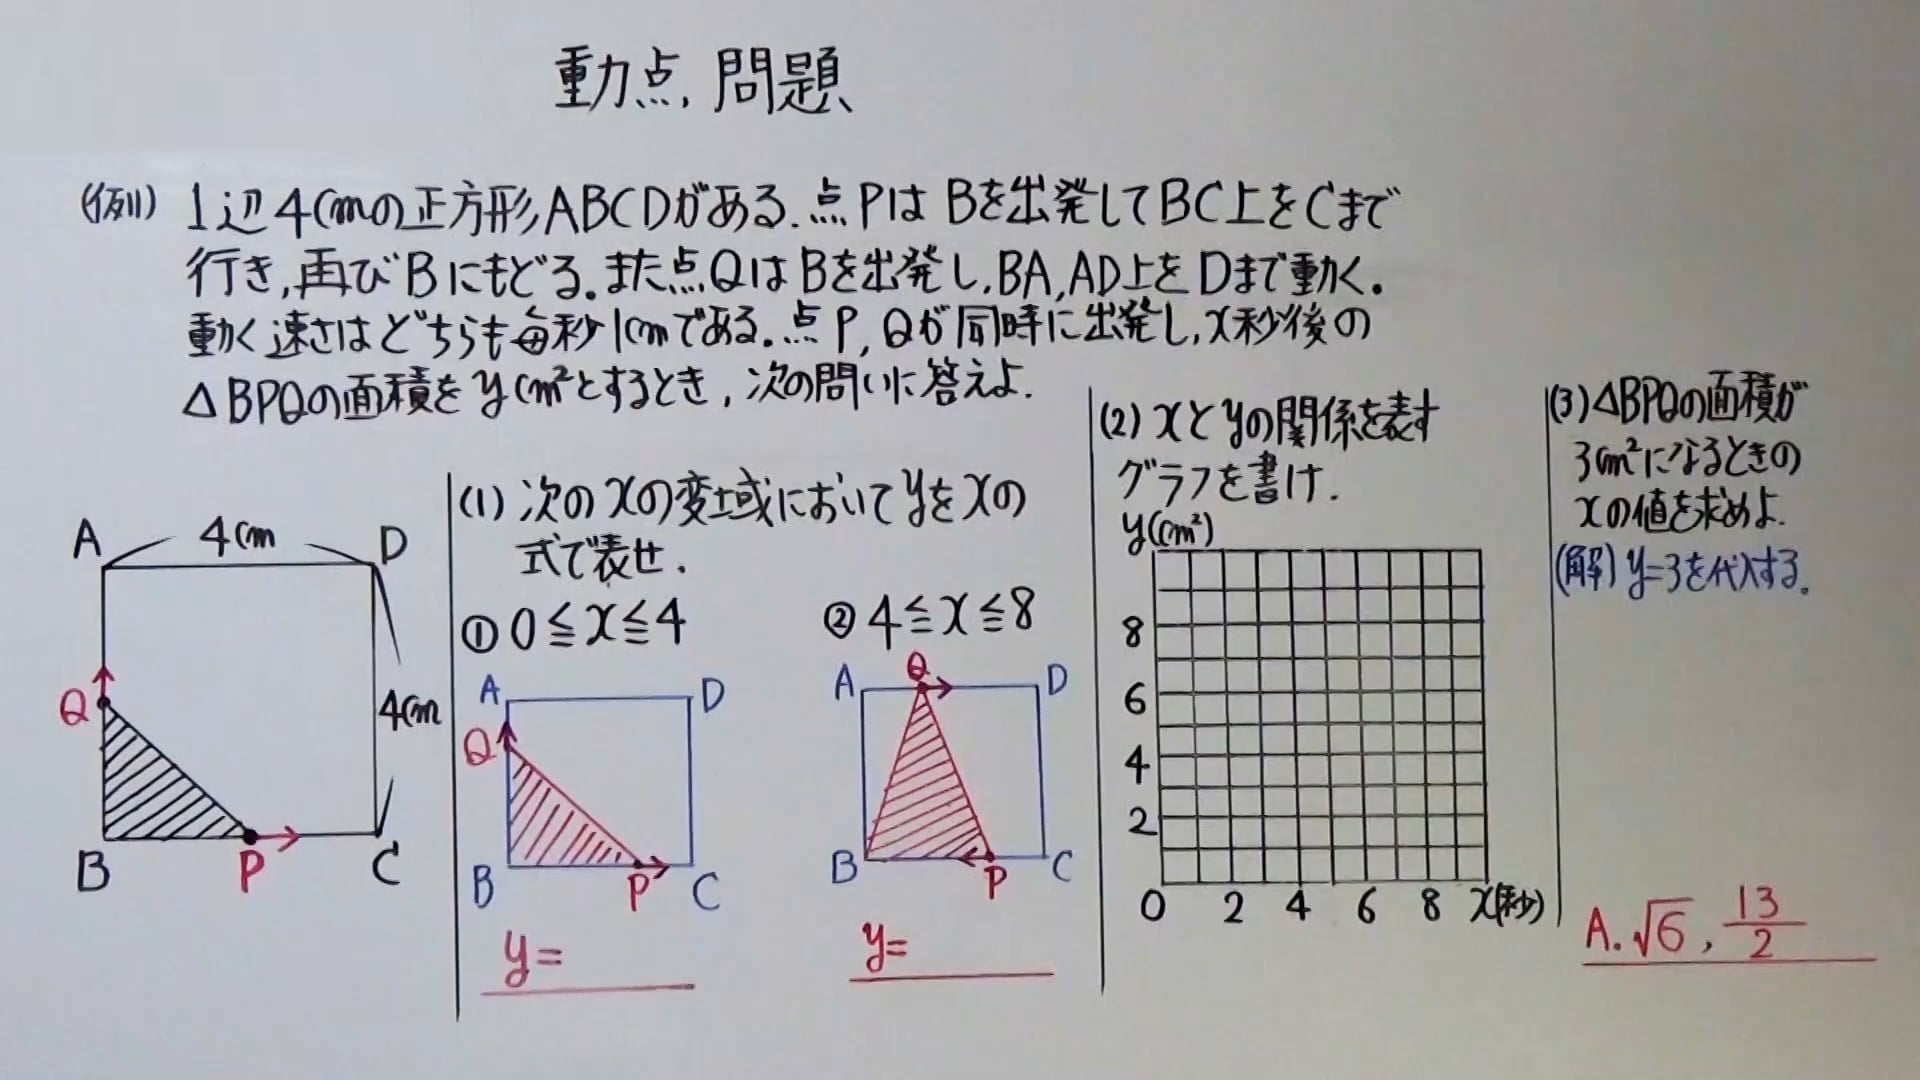 動点問題
(例) 1辺4cmの正方形ABCDがある.点PはBを出発してBC上をCまで
行き,再びBにもどる.また点QはBを出発し,BA,AD上をDまで動く.
動く速さはどちらも毎秒1cmである.点P,Qが同時に出発し,x秒後の
△BPQの面積をycm²とするとき,次の問いに答えよ.
A 4cm D
Q
4cm
B P C
(1) 次のxの変域においてyをxの
式で表せ.
① 0≦x≦4
A D
Q
B P C
y=
② 4≦x≦8
A Q D
B P C
y=
(2) xとyの関係を表す
グラフを書け.
y(cm²)
8
6
4
2
0 2 4 6 8 x(秒)
(3) △BPQの面積が
3cm²になるときの
xの値を求めよ.
(解) y=3を代入する.
A. √6, 13/2